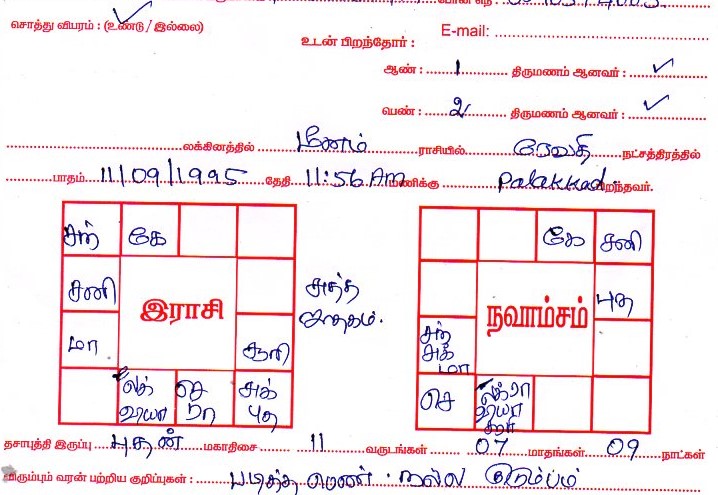 சொத்து விபரம் : (உண்டு / இல்லை)
E-mail:
உடன் பிறந்தோர் :
ஆண் : 1 திருமணம் ஆனவர் : ✓
பெண் : 2 திருமணம் ஆனவர் : ✓
லக்கினத்தில் மீனம் ராசியில் ரேவதி நட்சத்திரத்தில்
பாதம் 11/09/1995 தேதி 11:56 AM மணிக்கு Palakkad பிறந்தவர்.
சந் கே
சனி
மா
சூரி
லக் வியா
செ ரா
சுக் புத
இராசி
சுத்த ஜாதகம்.
கே சனி
புத
சந் சுக் மா
செ
லக் ரா வியா சூரி
நவாம்சம்
தசாபுத்தி இருப்பு புதன் மகாதிசை 11 வருடங்கள் 07 மாதங்கள் 09 நாட்கள்
விரும்பும் வரன் பற்றிய குறிப்புகள் : படித்த பெண் நல்ல குடும்பம்